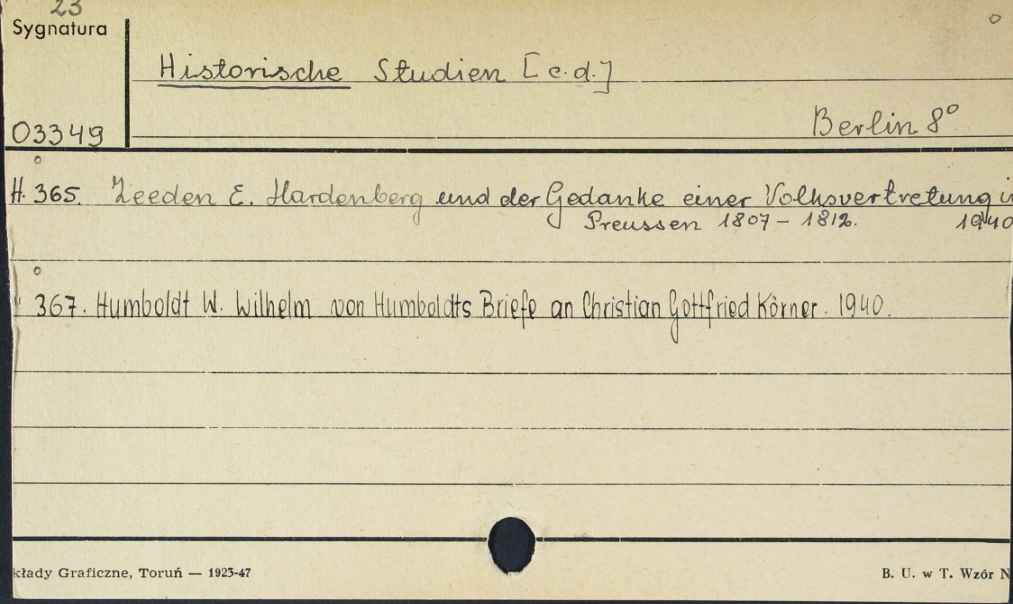 23
Sygnatura
Historische Studien [c.d.]
03349
Berlin 8°
H. 365. Zeeden E. Hardenberg und der Gedanke einer Volksvertretung in
Preussen 1807 – 1812. 1940
367. Humboldt W. Wilhelm von Humboldts Briefe an Christian Gottfried Körner. 1940.
kłady Graficzne, Toruń — 1925-47
B. U. w T. Wzór N